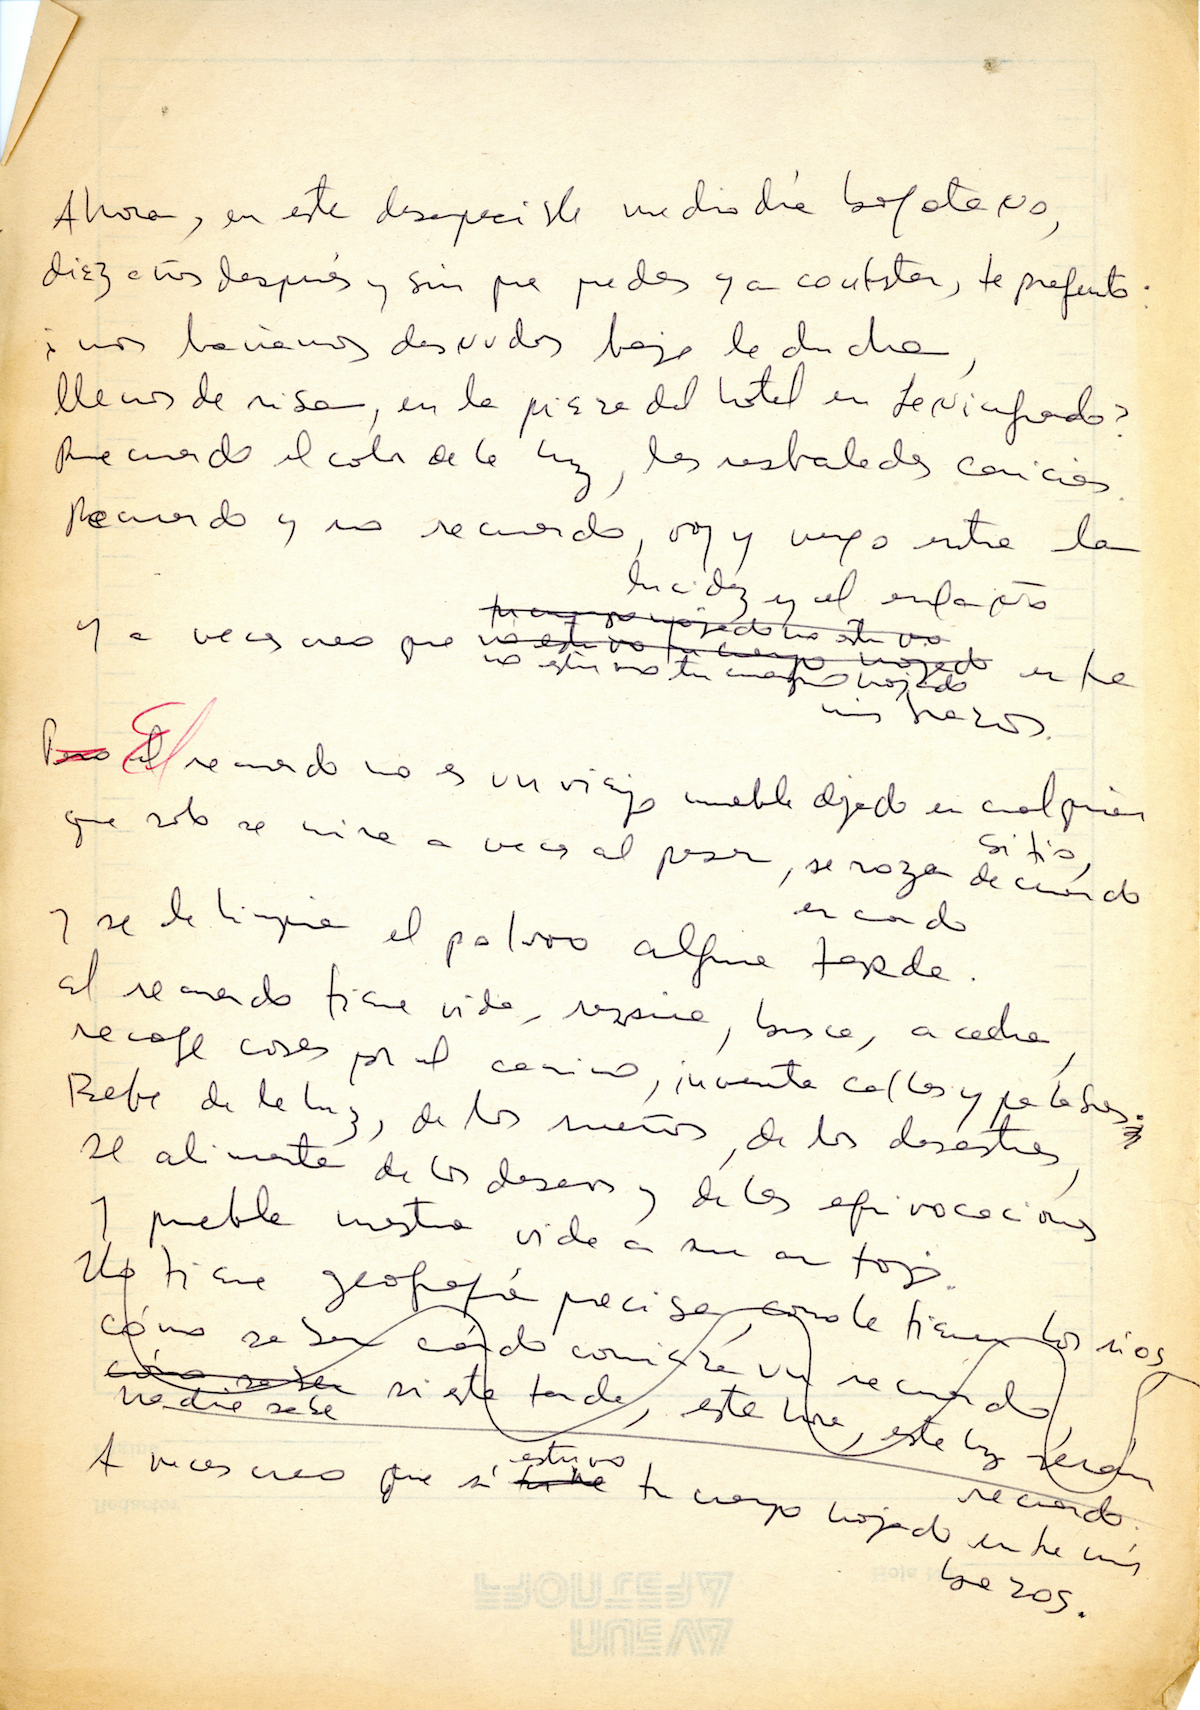 Ahora, en este desapacible mediodía bogotano,
diez años después y sin que puedas ya contestar, te pregunto:
¿nos bañamos desnudos bajo la ducha,
llenos de risa, en la pieza del hotel en Leningrado?
Recuerdo el color de la luz, las resbaladas caricias.
Recuerdo y no recuerdo, voy y vengo entre la
lucidez y el engaño
tu cuerpo mojado no estuvo
Y a veces creo que no estuvo tu cuerpo mojado entre
no estuvo tu cuerpo mojado
mis brazos.
Pero el El recuerdo no es un viejo mueble dejado en cualquier
sitio,
que solo se mira a veces al pasar, se roza de cuando
en cuando
y se le limpia el polvo alguna tarde.
El recuerdo tiene vida, respira, busca, acecha,
recoge cosas por el camino, inventa calles y palabras.
Bebe de la luz, de los sueños, de los desastres,
se alimenta de los deseos y de las equivocaciones
y puebla nuestra vida a su antojo.
No tiene geografía precisa como la tienen los ríos
cómo saber cuándo comienza un recuerdo,
cómo saber si esta tarde, esta hora, esta luz serán
nadie sabe
recuerdo.
estuvo
A veces creo que sí tu cuerpo mojado entre mis
brazos.
Página
Redactor
Hoja
NUEVA
FRONTERA